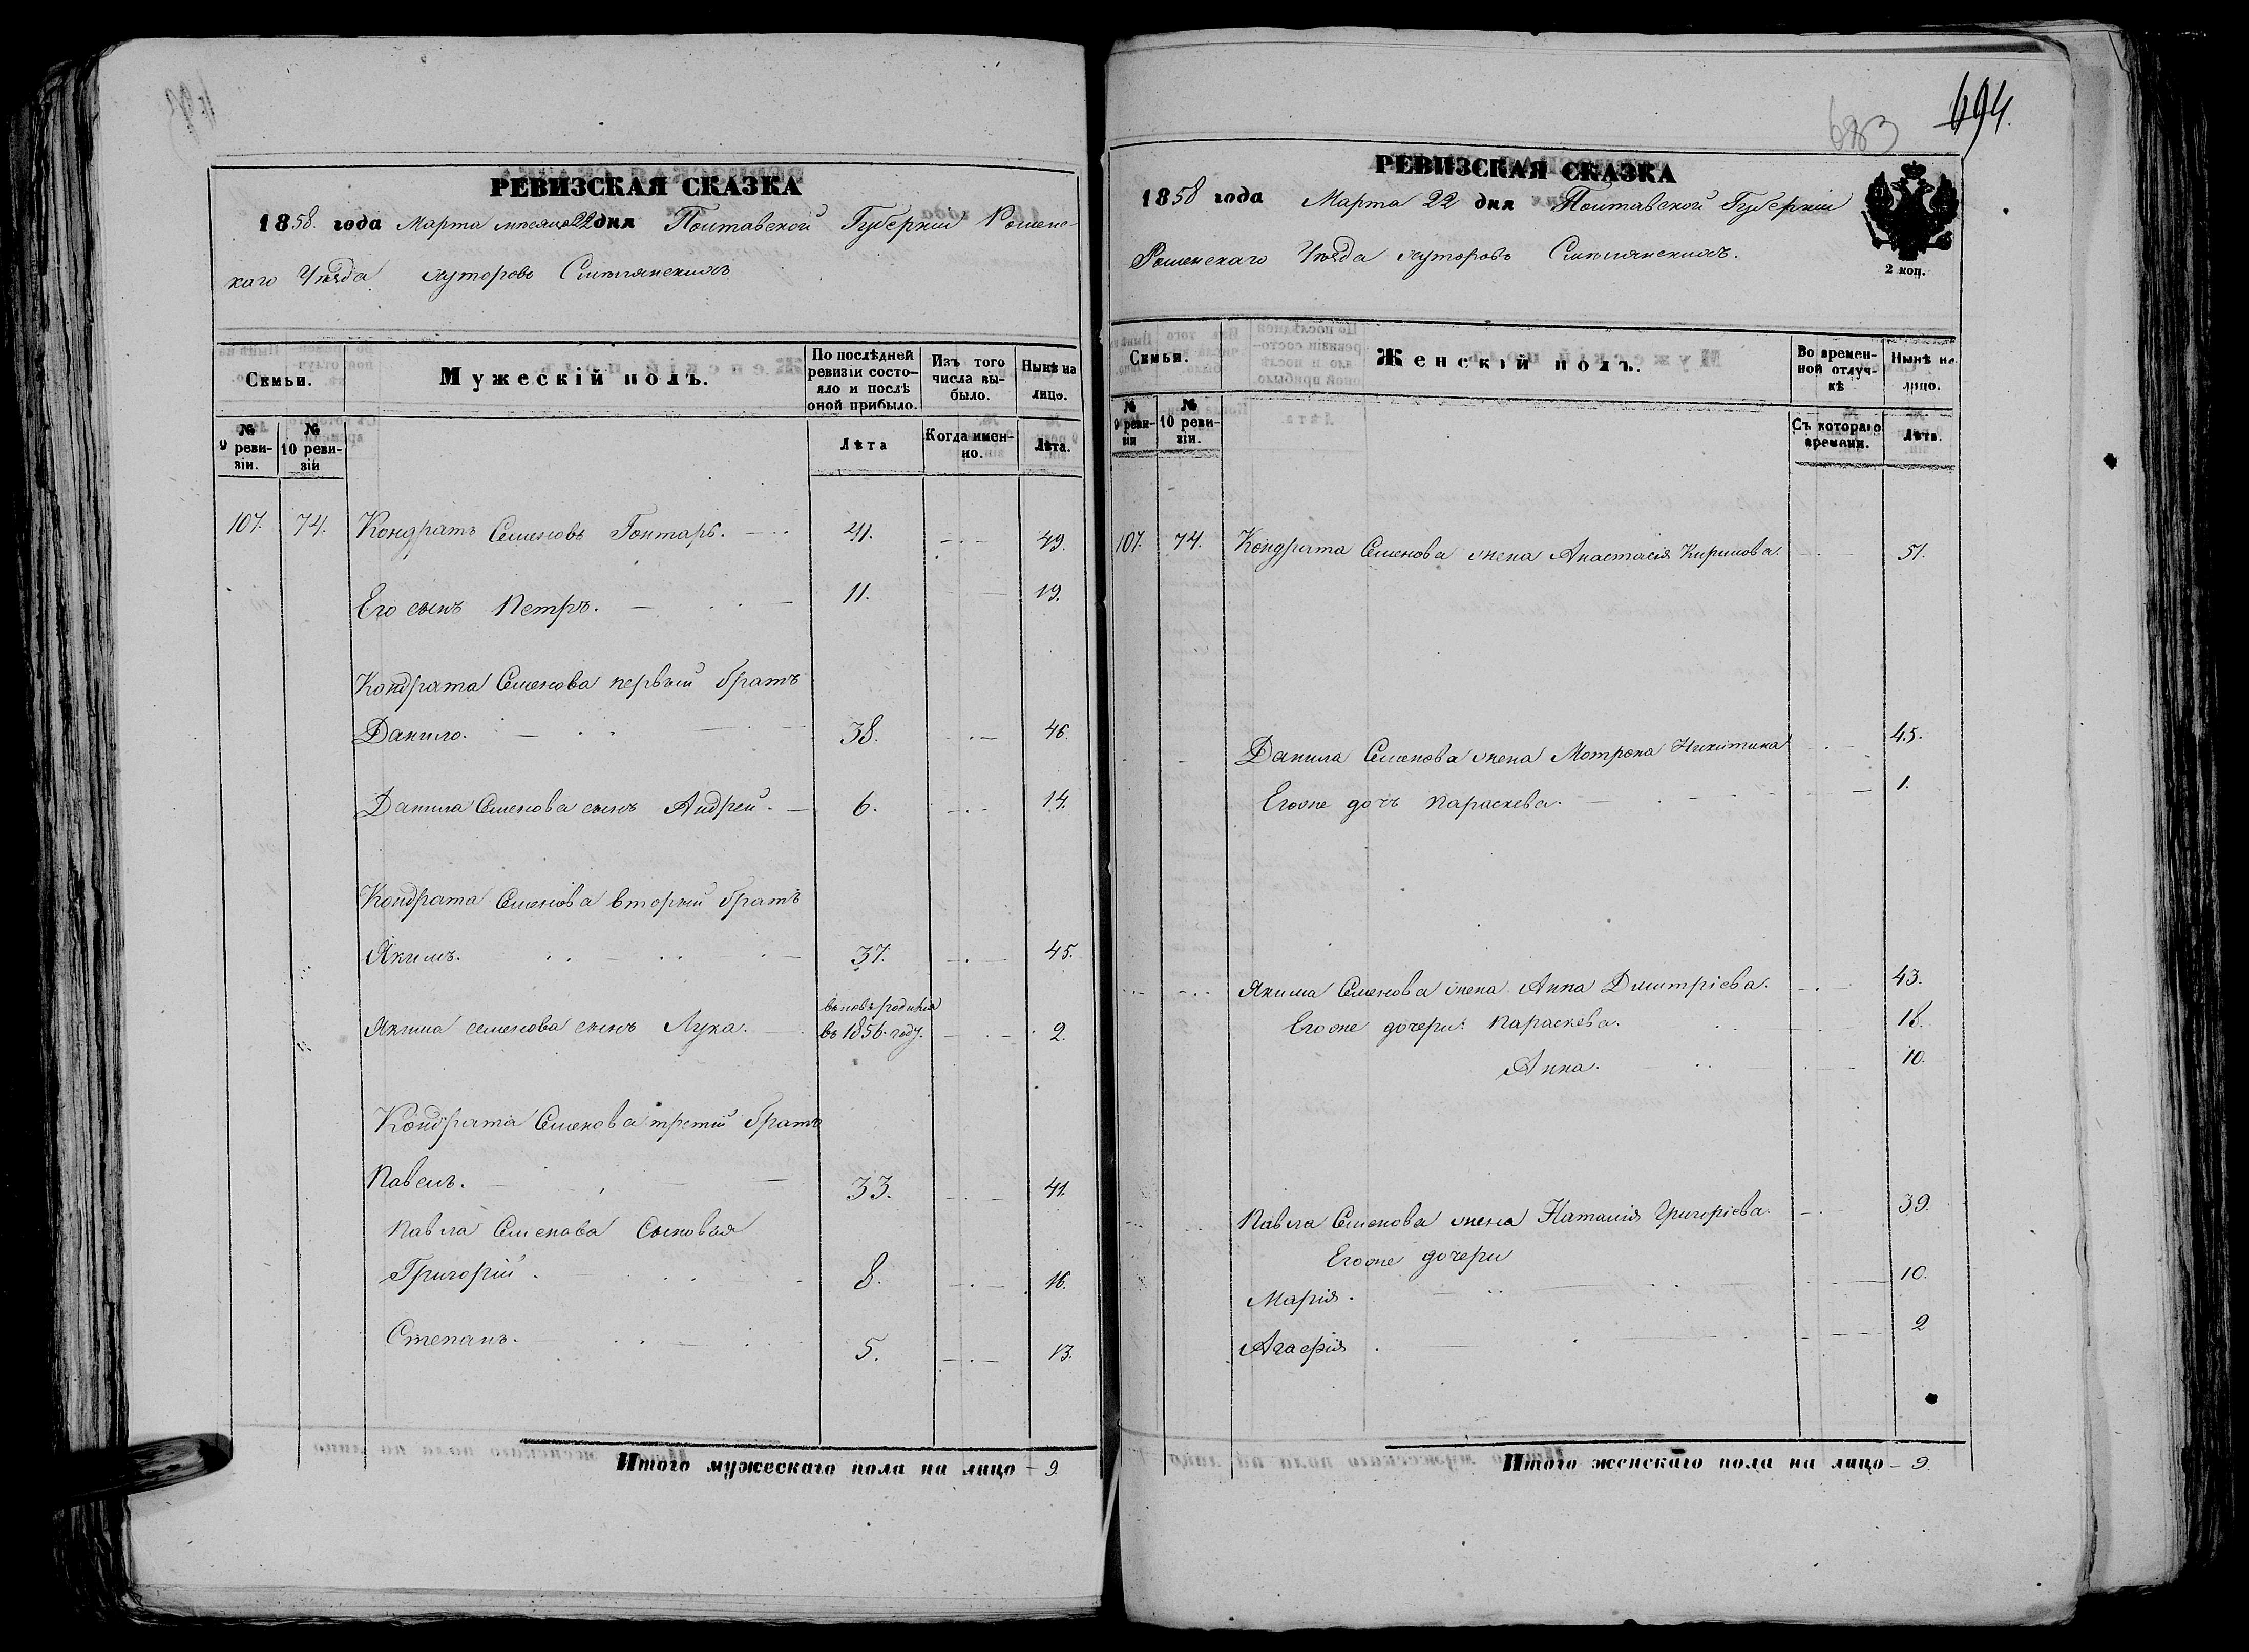 РЕВИЗСКАЯ СКАЗКА
1858. года Марта месяца 22 дня Полтавской Губерніи Роменс-
каго Уѣзда хуторовъ Смѣлянскихъ
Семьи.
Мужескій полъ.
По послѣдней ревизіи состояло и послѣ оной прибыло.
Изъ того числа выбыло.
Нынѣ на лицо.
№ 9 ревизіи.
№ 10 ревизіи
Лѣта
Когда именно.
Лѣта.
107. 74. Кондратъ Семеновъ Гонтарь. 41. 49.
Его сынъ Петръ. 11. 19.
Кондрата Семенова первый братъ
Данило. 38. 46.
Данила Семенова сынъ Андрей. 6. 14.
Кондрата Семенова вторый братъ
Якимъ. 37. 45.
Якима семенова сынъ Лука. вновь родился въ 1856. году. 2.
Кондрата Семенова третій братъ
Павелъ. 33. 41.
Павла Семенова Сыновья
Григорій. 8. 16.
Степанъ. 5. 13.
Итого мужескаго пола на лицо 9.
683
694.
РЕВИЗСКАЯ СКАЗКА
1858 года Марта 22 дня Полтавской Губерніи
Роменскаго Уѣзда хуторовъ Смѣлянскихъ.
2 коп.
Семьи.
Женскій полъ.
Во временной отлучкѣ
Нынѣ на лицо.
№ 9 ревизіи
№ 10 ревизіи.
Съ котораго времени.
Лѣта.
107. 74. Кондрата Семенова жена Анастасія Кирилова. 51.
Данила Семенова жена Мотрона Никитина 45.
Егоже дочь Параскева. 1.
Якима Семенова жена Анна Дмитріева. 43.
Егоже дочери: Параскева. 18.
Анна. 10.
Павла Семенова жена Наталія Григоріева. 39.
Егоже дочери
Марія. 10.
Агафія 2
Итого женскаго пола на лицо 9.